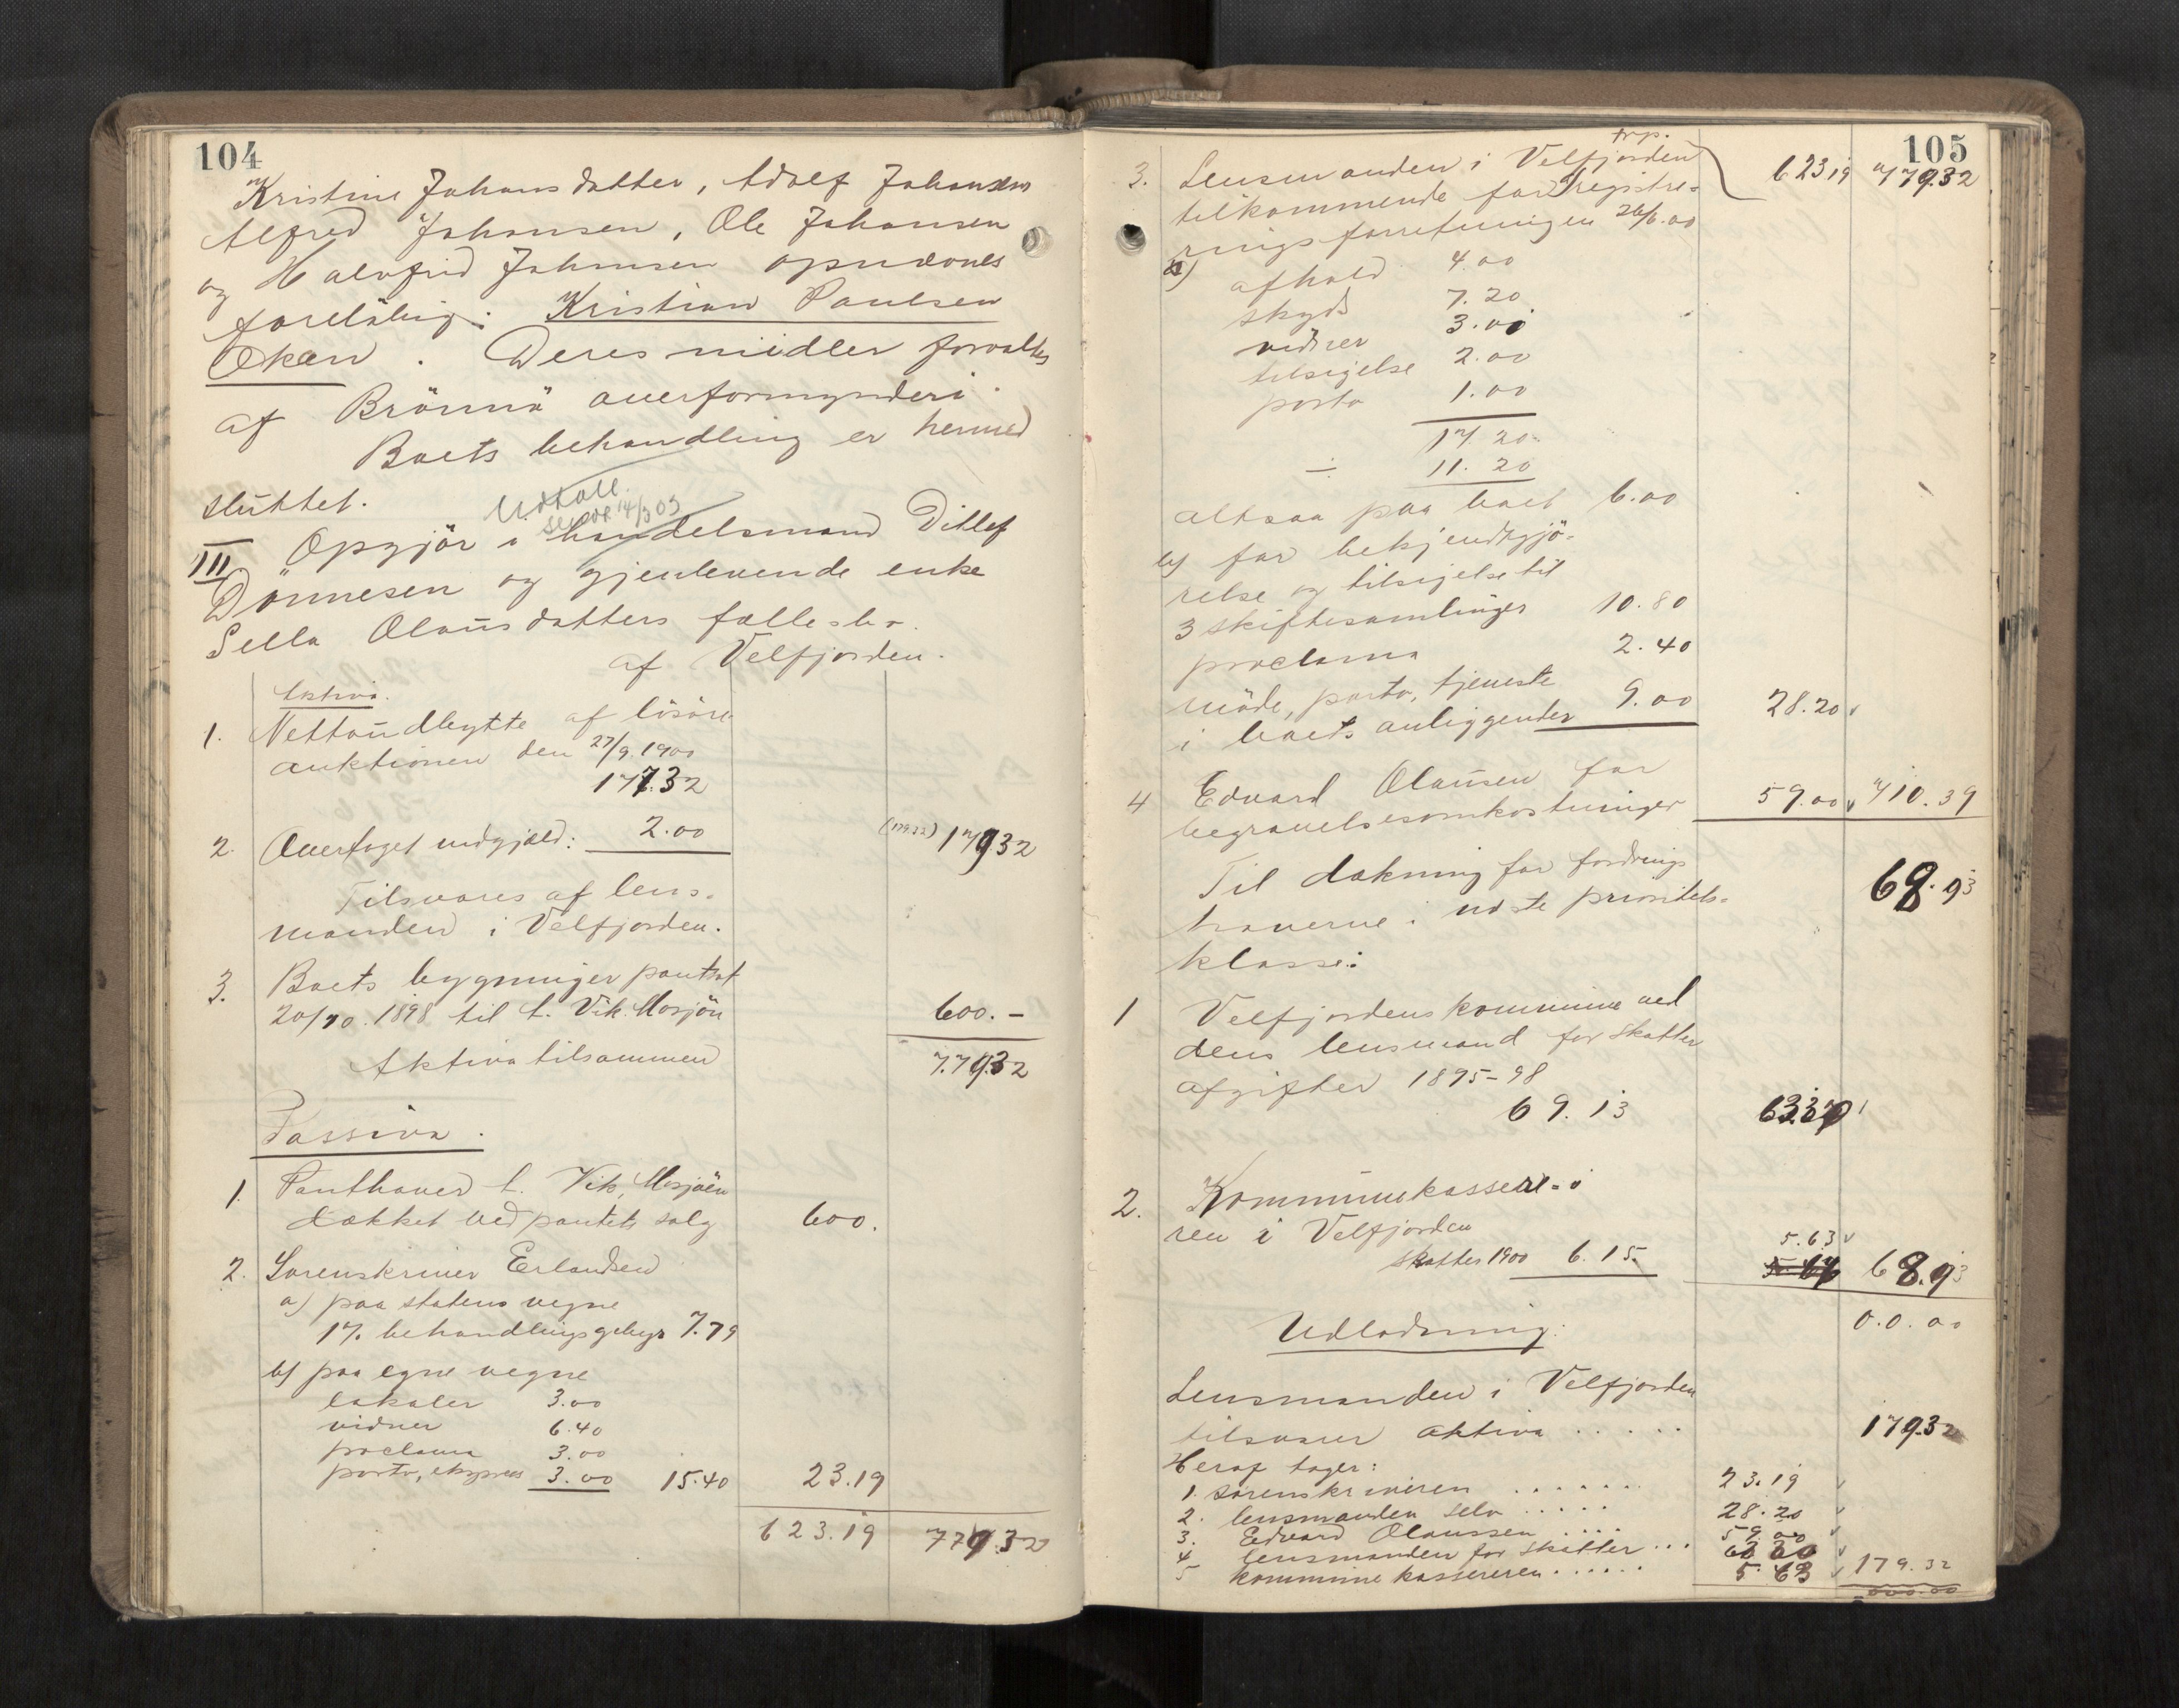 104
Kristine Johansdatter, Adolf Johansen
Alfred Johansen, Ole Johansen
og Halvfrid Johansen opnævnes
foreløbig: Kristian Paulsen
Økan. Deres midler forvaltes
af Brönnö overformynderi.
Boets behandling er hermed
sluttet.
Udtall.
sendt 14/3 03
III Opgjör i handelsmand Ditlef
Dönnesen og gjenlevende enke
Sella Olausdatters fællesbo
af Velfjorden.
Aktiva.
1. Nettoudbytte af lösöre
auktionen den 27/9. 1900
177.32
2. Overtaget indgjæld: 2.00 (179.32) 179.32
Tilsvares af lens-
manden i Velfjorden.
3. Boets bygninger pantsat
20/10. 1898 til A. Vik. Mosjöen 600.-
Aktiva tilsammen 779.32
Passiva.
1. Panthaver A. Vik, Mosjöen
dækket ved pantets salg 600.
2. Sorenskriver Erlandsen
a) paa statens vegne
1% behandlingsgebyr 7.79
b) paa egne vegne
lokaler 3.00
vidner 6.40
proclama 3.00
porto, expres 3.00 15.40 23.19
623.19 779.32
105
3. Lensmanden i Velfjorden 623.19 779.32
tilkommende for registre-
ringsforretningen 26/6.00
a)
afhold 4.00
skyds 7.20
vidner 3.00
tilsigelse 2.00
porto 1.00
17.20
÷ 11.20
altsaa paa boet 6.00
b) for bekjendtgjö-
relse og tilsigelse til
3 skiftesamlinger 10.80
proclama 2.40
möde, porto, tjeneste
i boets anliggender 9.00 28.20
4 Edvard Olausen for
begravelsesomkostninger 59.00 710.39
Til dækning for fordrings 68.93
haverne i næste prioritets-
klasse:
1 Velfjordens kommune ved
dens lensmand for skatter
afgifter 1895-98
69.13 63.30
2. Kommunekassere-
ren i Velfjorden
skatter 1900 6.15 5.63 68.93
0.0.00
Udlodning:
Lensmanden i Velfjorden
tilsvarer aktiva ..... 179.32
Heraf tager:
1. sorenskriveren ....... 23.19
2. lensmanden selv ..... 28.20
3. Edvard Olaussen .... 59.00
4 lensmanden for skatter ... 63.30
5 kommunekassereren ...... 5.63 179.32
000.00